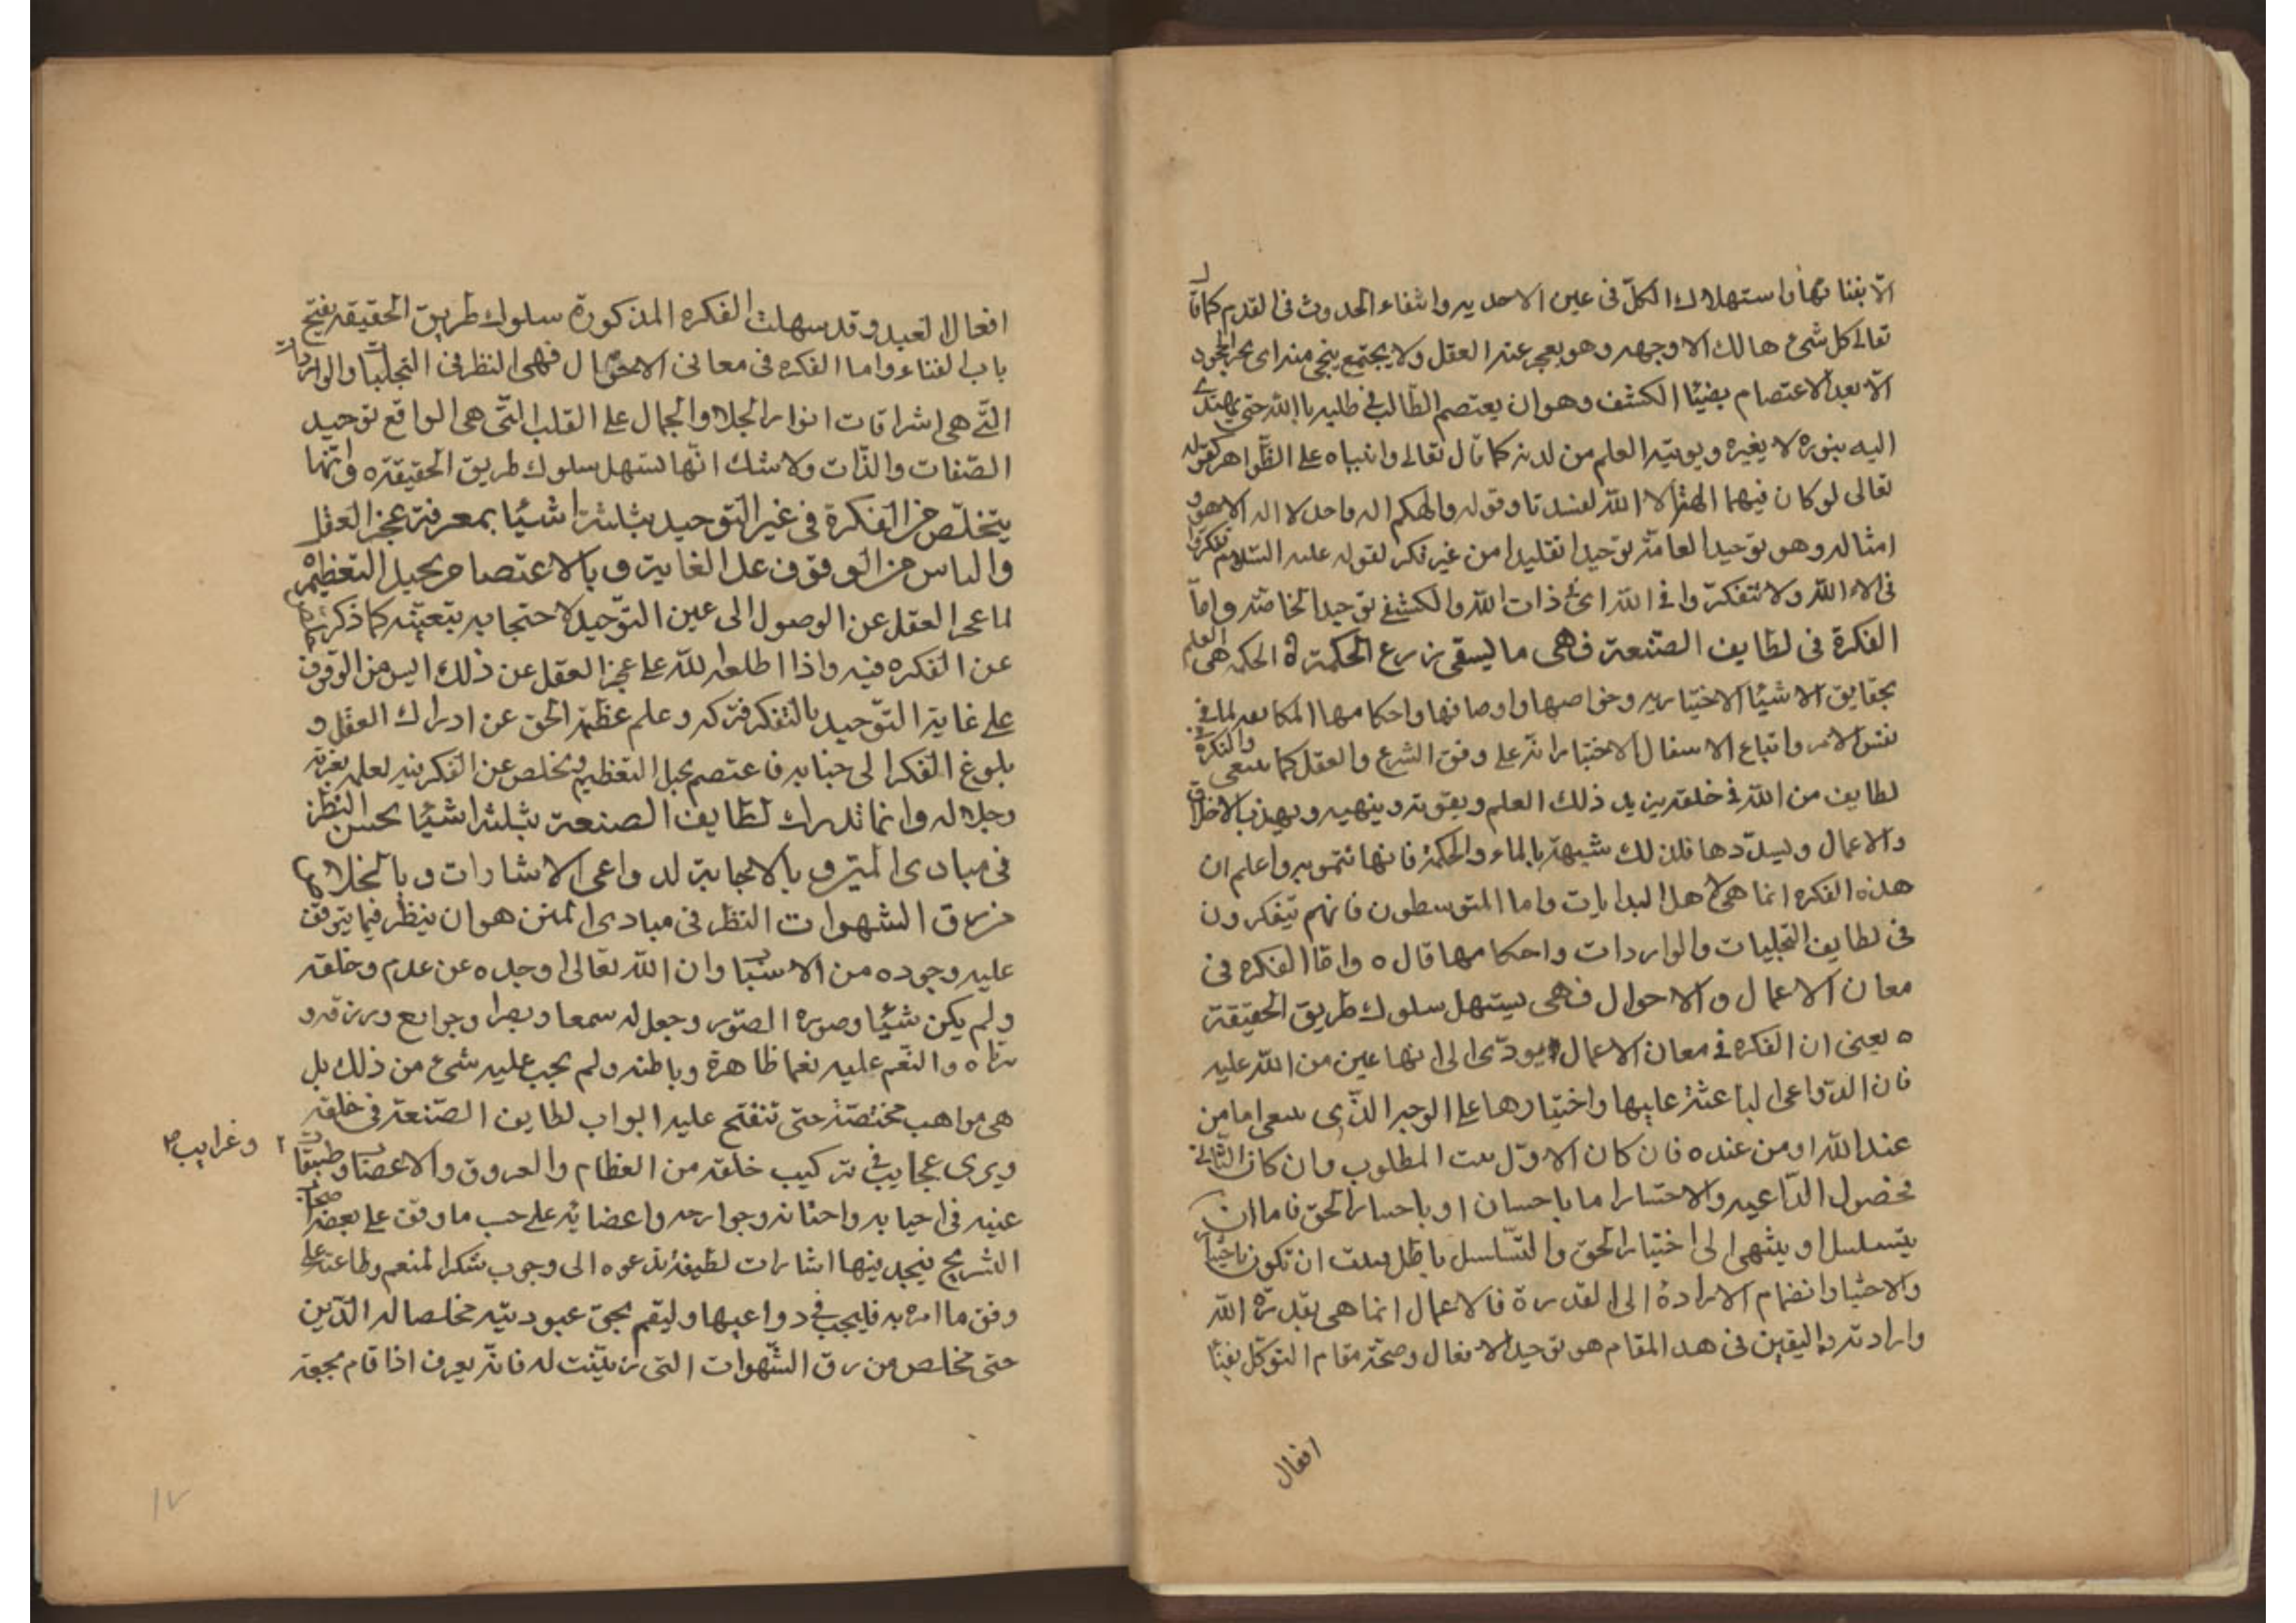 الا بفنائها واستهلاك الكل فى عين الاحديه وانتفاء الحدوث فى القدم كما قال
تعالى كل شئ هالك الا وجهه وهو يعجز عنه العقل ولا يجتمع ينجى منه اى بحر الجحود
الا بعد الاعتصام بضيئا الكشف وهو ان يعتصم الطالب فى طلبه بالله حتى يهتدى
اليه بنوره لا بغيره ويوتيه العلم من لدنه كما قال تعالى وانبياه على الظواهر كقوله
تعالى لو كان فيهما الهة الا الله لفسدتا وقوله والهكم اله واحد لا اله الا هو و
امثاله وهو توحيد العامة توحيدا تقليدا من غير فكر لقوله عليه السلام تفكروا
فى الاء الله ولا تتفكروا فى الله اى فى ذات الله والكشفى توحيد الخاصة واما
الفكرة فى لطايف الصنعة فهى ما يسقى زرع الحكمة ه الحكمة هى العلم
بحقايق الاشيئا الاختياريه وخواصها واوصافها واحكامها لما فى
نفس الامر واتباع على وفق الشرع والعقل كما والفكرة فى
لطايف من الله فى خلقه يزيد ذلك العلم ويقويه وينهيه ويهذب الاخلاق
والاعمال ويسددها فلذلك شبهة بالماء والحكمة فانها تنمو به واعلم ان
هذه الفكره انما هى لاهل البدايات واما المتوسطون فانهم يتفكرون
فى لطايف التجليات والواردات واحكامها قال ه واما الفكره فى
معان الاعمال والاحوال فهى يسهل سلوك طريق الحقيقة
ه يعنى ان الفكره فى معان الاعمال يودى الى انها عين من الله عليه
فان الدواعى الباعثة عليها واختيارها على الوجه الذى اما من
عند الله او من عنده فان كان الاول المطلوب وان كان الثانى
فحصول الداعيه اما باحسان او الحق فاما ان
يتسلسل او ينتهى الى اختيار الحق والتسلسل باطل ان تكون باختيار
والاختيار انضمام الارادة الى القدرة فالاعمال انما هى بقدرة الله
وارادته واليقين فى هذ المقام هو توحيد الافعال وصحة مقام التوكل بفنا
افعال
افعال العبد وقد سهلت الفكره المذكورة سلوك طريق الحقيقة بفتح
باب الفناء واما الفكره فى معانى الاحوال فهى النظر فى التجليات والواردات
التى هى اشراقات انوار الجلال والجمال على القلب التى هى الواقع توحيد
الصفات والذات ولا شك انها تسهل سلوك طريق الحقيقة ه وانما
يتخلص من الفكرة فى غير التوحيد بثلثة اشيئا بمعرفة عجز العقل
والياس من الوقوف على الغاية وبالاعتصام بحبل التعظيم
لما عجز العقل عن الوصول الى عين التوحيد لاحتجابه بتعينه كما ذكر
عن الفكره فيه واذا اطلعه لله على عجز العقل عن ذلك ايس من الوقوف
على غاية التوحيد بالتفكر فتركه وعلم عظمة الحق عن ادراك العقل و
بلوغ الفكر الى جنابه فاعتصم بحبل التعظيم وتخلص عن الفكر فيه لعلمه بعزته
وجلاله وانما تدرك لطايف الصنعة بثلثة اشيئا بحسن النظر
فى مبادى المنن و بالاجابة لدواعى الاشارات وبالخلاص
من رق الشهوات النظر فى مبادى المنن هو ان ينظر فيما يتوقف
عليه وجوده من الاسباب وان الله تعالى اوجده عن عدم وخلقه
ولم يكن شيئا وصوره الصور وجعل له سمعا وبصرا وجوامع ورزقه و
رباه والنعم عليه نعما ظاهرة وباطنه ولم يجب عليه شئ من ذلك بل
هى مواهب مختصة حتى تنفتح عليه ابواب لطايف الصنعة فى خلقه
ويرى عجايب فى تركيب خلقه من العظام والعروق والاعصاب وطبقات
وغرايب
عينيه فى واحشائه وجوارحه واعضائه على حسب ما وقف على بعضه
التشريح فيجد فيها اشارات لطيفة تدعوه الى وجوب شكر المنعم وطاعته على
وفق ما امره به فليجب فى دواعيها وليقم بحق عبوديته مخلصا له الدين
حتى تخلص من رق الشهوات التى زينت له فانه يعرف اذا قام بحقه
١٧